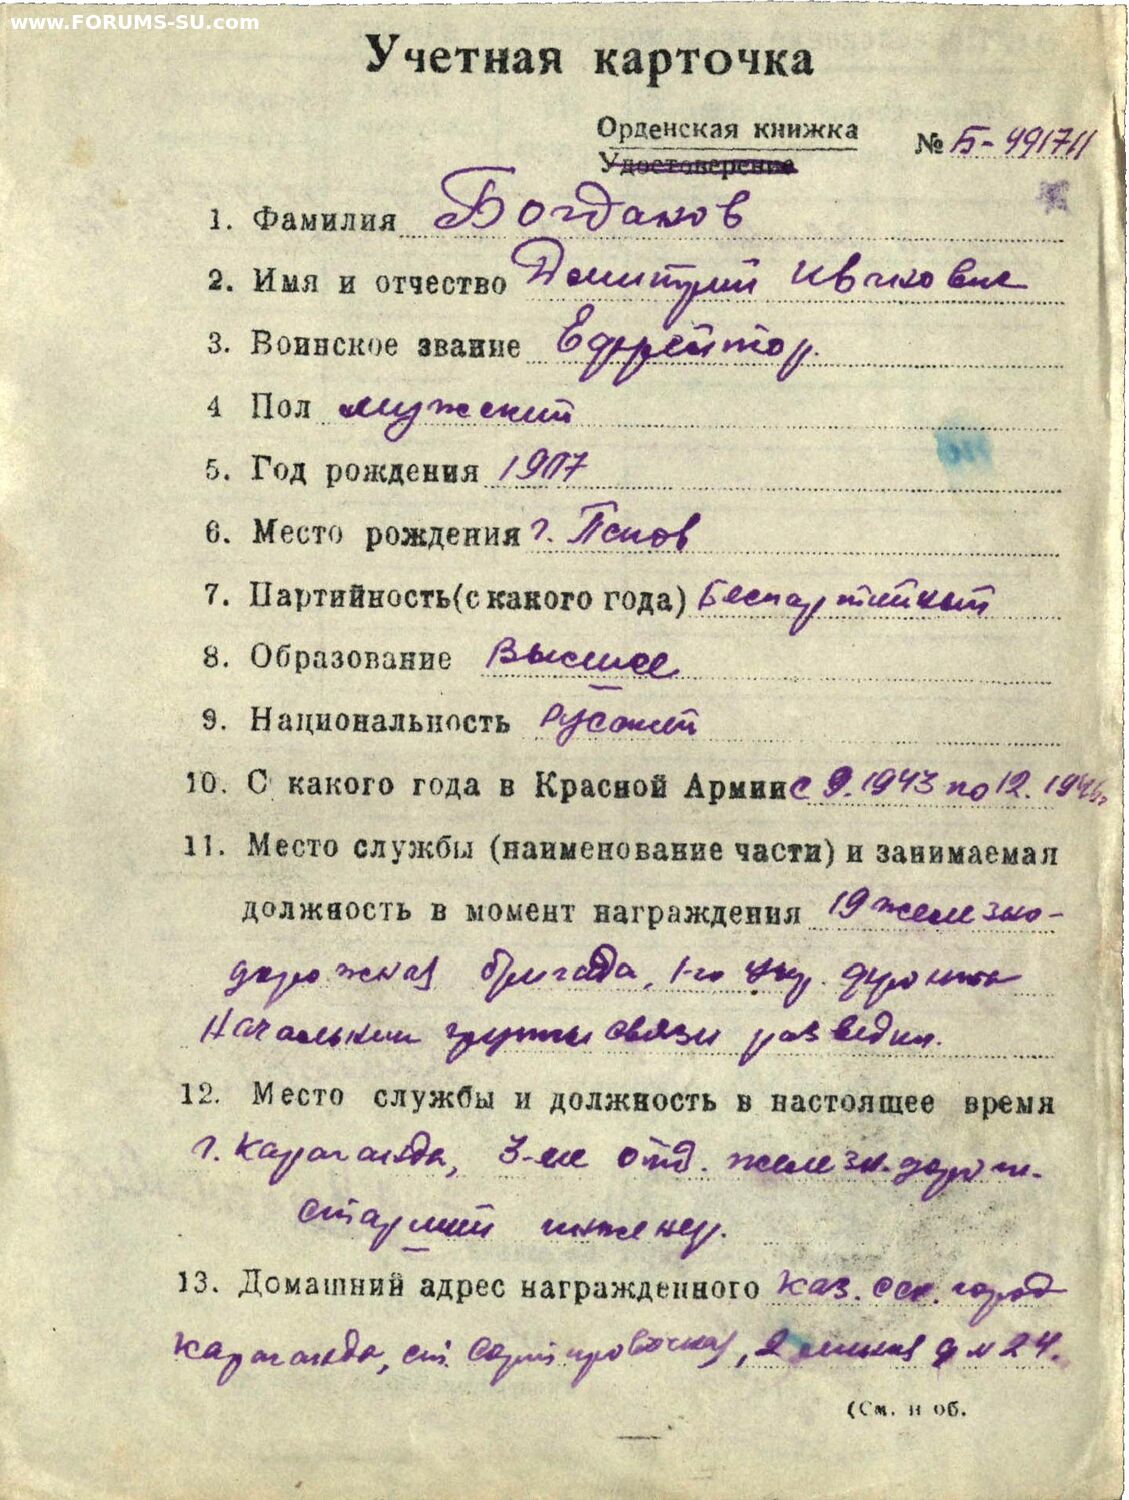 www.FORUMS-SU.com
Учетная карточка
Орденская книжка № Б-491711
Удостоверение
1. Фамилия Богданов
2. Имя и отчество Дмитрий Иванович
3. Воинское звание Ефрейтор.
4 Пол мужской
5. Год рождения 1907
6. Место рождения г. Псков
7. Партийность (с какого года) Беспартийный
8. Образование Высшее
9. Национальность Русский
10. С какого года в Красной Армии с 9.1943 по 12.1945г
11. Место службы (наименование части) и занимаемая
должность в момент награждения 19 железно-
дорожная бригада, 1-го Укр. фронта
Начальник группы связи разведки.
12. Место службы и должность в настоящее время
г. Караганда, 3-ие отд. железн. дорож.
старший инженер.
13. Домашний адрес награжденного Каз. сср. город
Караганда, ст. Сортировочная, 2 линия д № 24.
(См. н об.